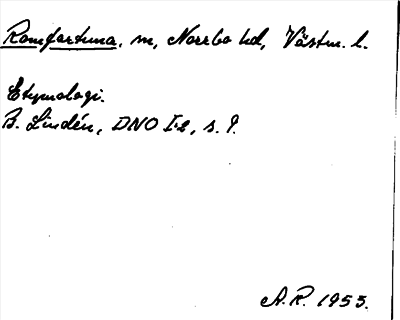 Romfartuna, m, Norrbo hd, Västm. l.
Etymologi.
B. Lindén, DNO I:2, s. 9.
A.R. 1953.